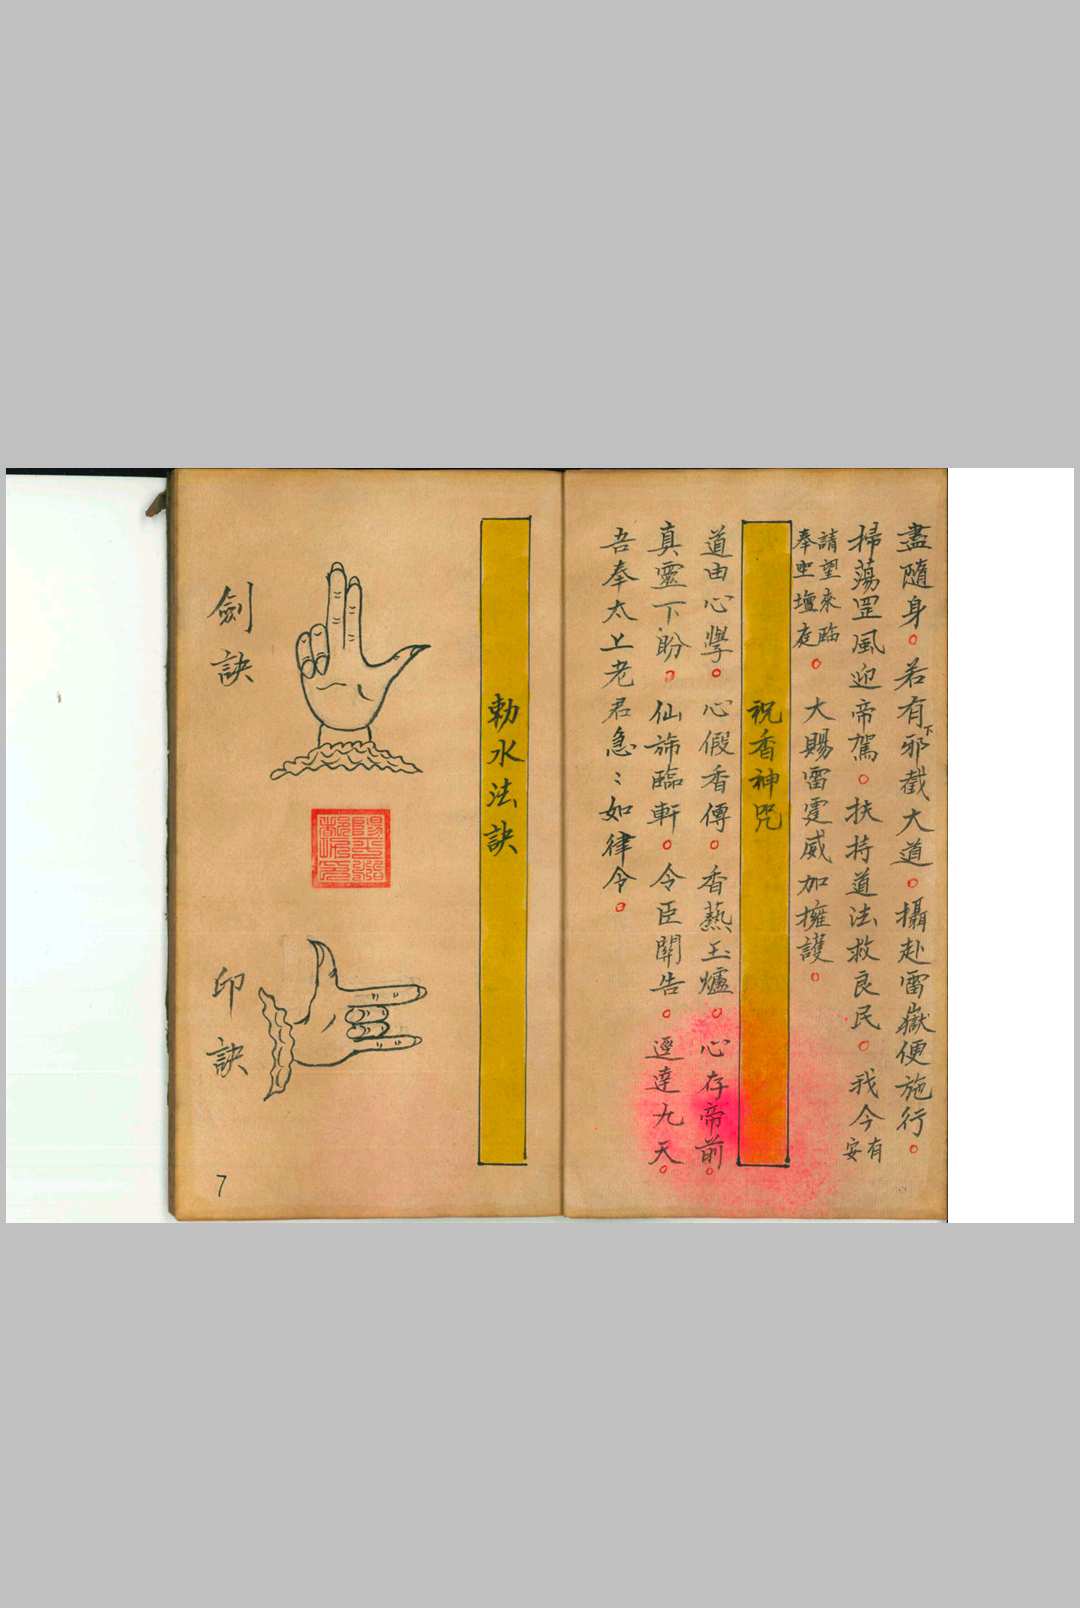 盡隨身。若有下邪截大道。攝赴雷嶽便施行。
掃蕩罡風迎帝駕。扶持道法救良民。我今有安
請望來臨
奉聖壇庭。大賜雷霆威加擁護。
祝香神咒
道由心學。心假香傳。香爇玉爐。心存帝前。
真靈下盼。仙斾臨軒。令臣關告。逕達九天。
吾奉太上老君急〻如律令。
勅水法訣
劍訣
印訣
7